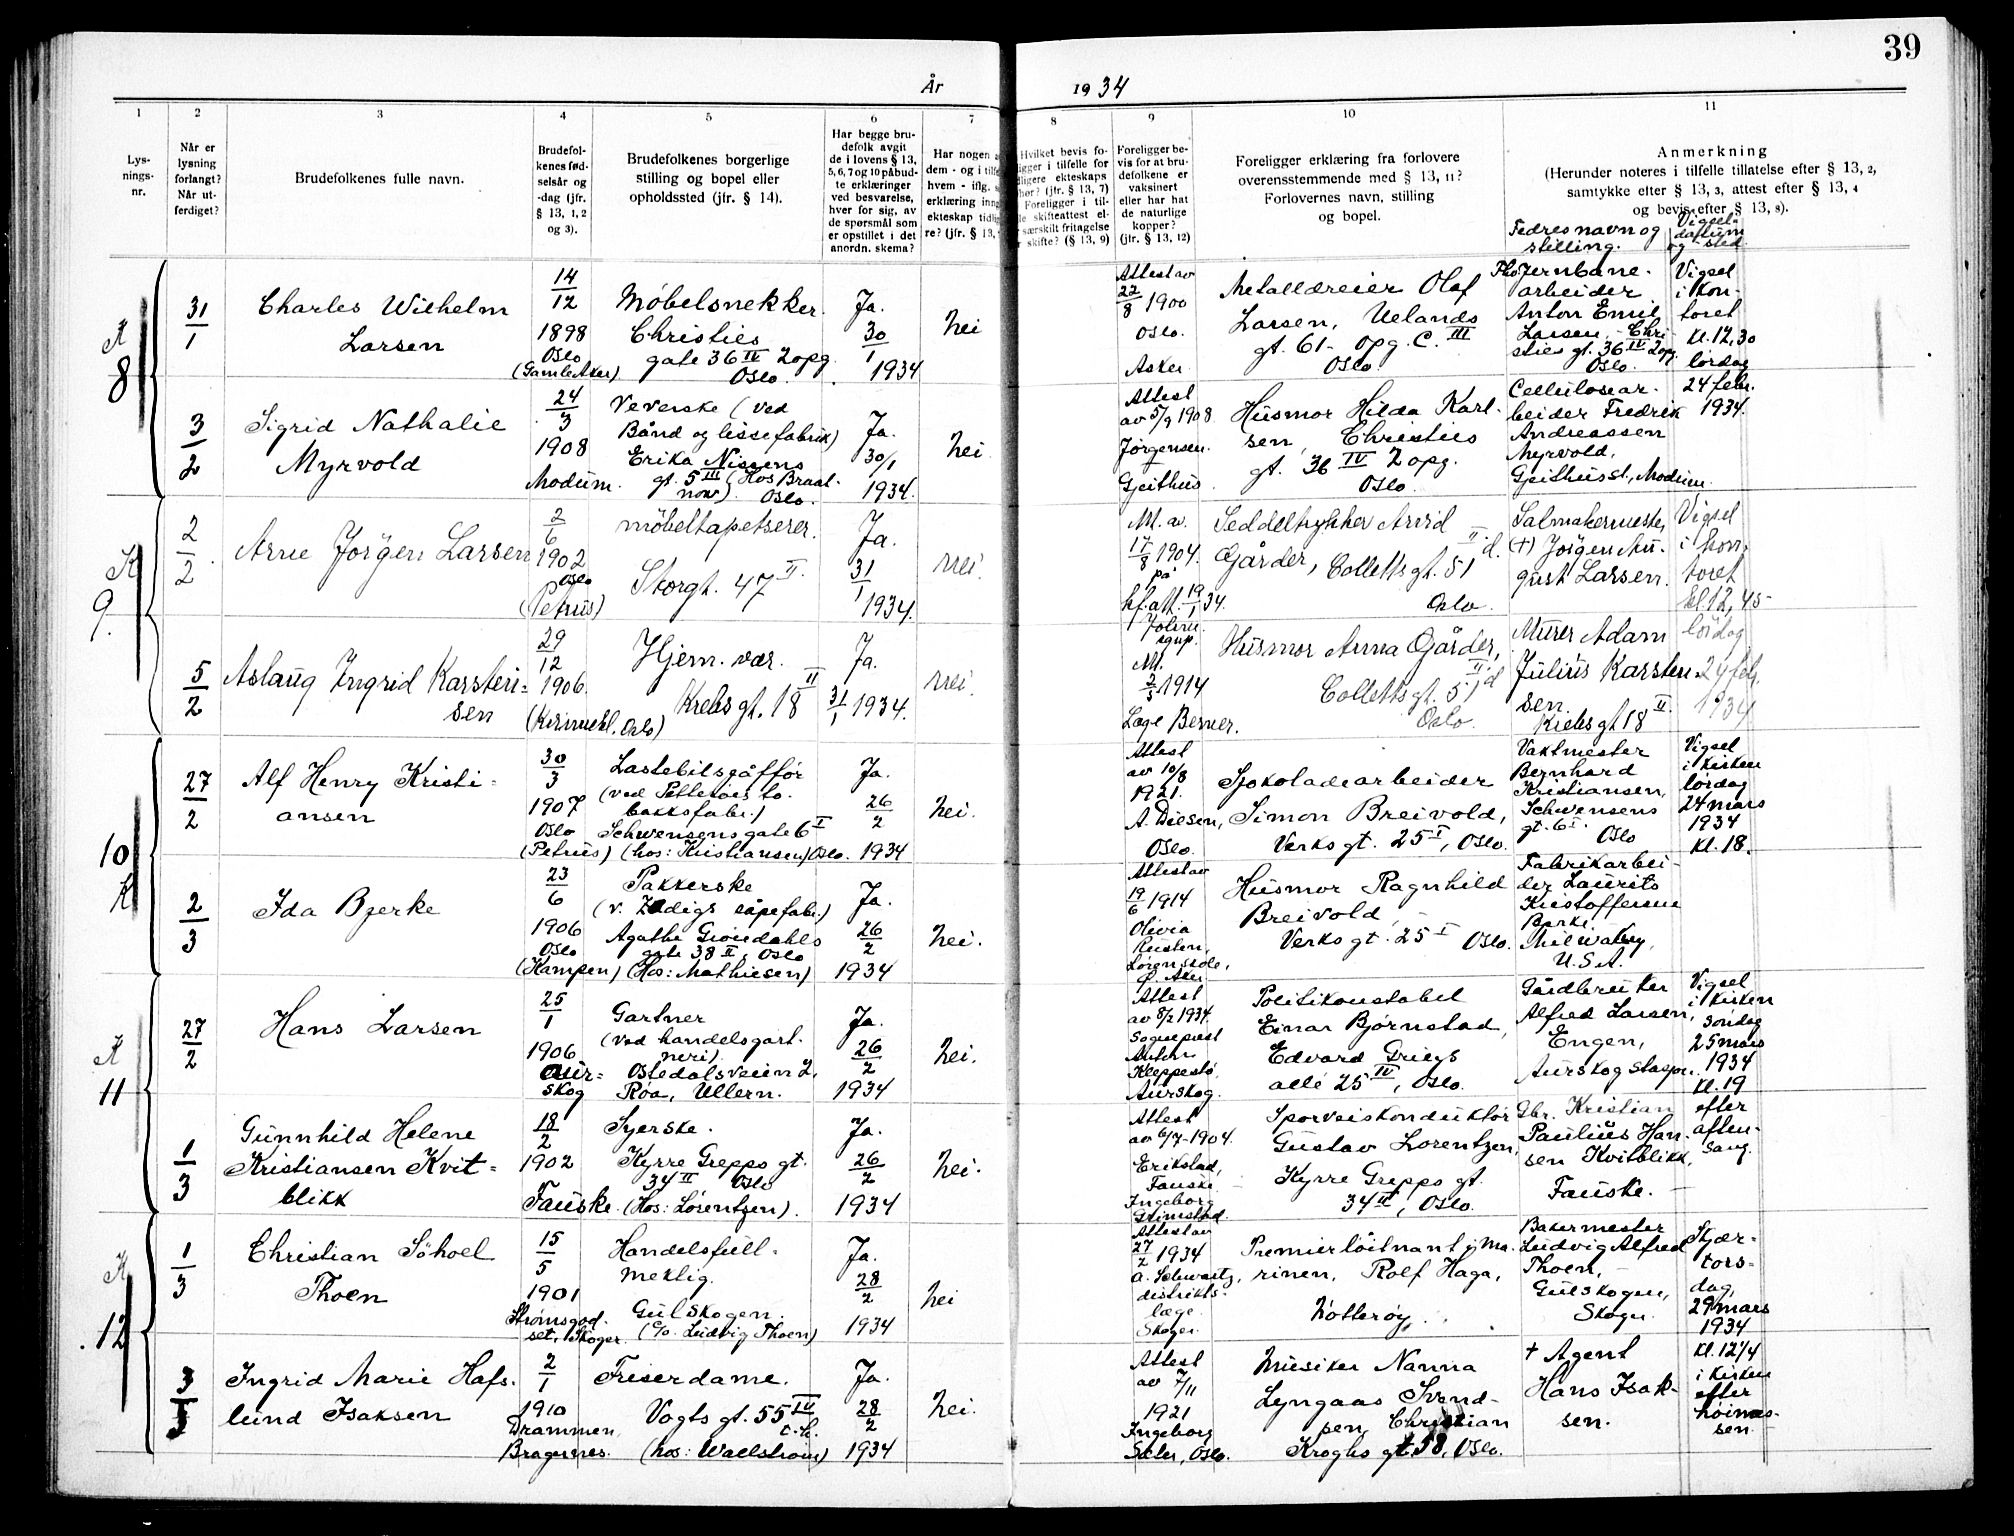 39
År 1934
1
2
3
4
5
6
7
8
9
10
11
Lys-
nings-
nr.
Når er
lysning
forlangt?
Når ut-
ferdiget?
Brudefolkenes fulle navn.
Brudefol-
kenes fød-
selsår og
-dag (jfr.
§ 13, 1, 2
og 3).
Brudefolkenes borgerlige
stilling og bopel eller
opholdssted (jfr. § 14).
Har begge bru-
defolk avgit
de i lovens § 13,
5, 6, 7 og 10 påbud-
te erklæringer
ved besvarelse,
hver for sig, av
de spørsmål som
er opstillet i det
anordn. skema?
Har nogen a
dem - og i tilfe
hvem - iflg. s
erklæring inng
ekteskap tidlig
re? (jfr. § 13,
Hvilket bevis fo-
ligger i tilfelle for
dligere ekteskaps
hør? (jfr. § 13, 7)
Foreligger i til-
le skifteattest el-
særskilt fritagelse
skifte? (§ 13, 9)
Foreligger be-
vis for at bru-
defolkene er
vaksinert
eller har hat
de naturlige
kopper?
(jfr. § 13, 12)
Foreligger erklæring fra forlovere
overensstemmende med § 13, 11?
Forlovernes navn, stilling
og bopel.
Anmerkning
(Herunder noteres i tilfelle tillatelse efter § 13, 2,
samtykke efter § 13, 3, attest efter § 13, 4
og bevis efter § 13, 8).
Fedres navn og
stilling.
Vigsel-
datum
og sted
K
8
31/1
Charles Wilhelm
Larsen
14/12
1898
Oslo
(Gamle Aker)
Møbelsnekker.
Christies
gate 36 IV 2 opg.
Oslo.
Ja.
30/1
1934
Nei
Attest av
22/8 1900
Oslo.
Asker
Metalldreier Olaf
Larsen, Uelands
gt. 61 - opg. C. III
Oslo
Jernbane-
arbeider
Anton Emil
Larsen, Chri-
sties gt. 36 IV 2 opg.
Oslo.
Vigsel
i kon-
toret
kl. 12,30
lørdag
24 febr.
1934.
3/2
Sigrid Nathalie
Myrvold
24/3
1908
Modum.
Veverske (ved
Bånd og lissefabrik)
Erika Nissens
gt. 5 III (Hos Braat-
now) Oslo.
Ja.
30/1
1934.
Nei
Attest
av 5/9 1908
Jørgensen.
Geithus
Husmor Hilda Karl-
sen, Christies
gt. 36 IV 2 opg.
Oslo
Cellulosear-
beider Fredrik
Andreassen
Myrvold,
Geithus st., Modum.
K
9.
2/2
Arne Jørgen Larsen
2/6
1902
Oslo
(Petrus)
Møbeltapetserer.
Storgt. 47 II.
Ja.
31/1
1934.
Nei.
Att. av.
17/8 1904.
på
kf. att. 19/1 34.
Seddeltrykker Arvid
Gårder, Colletts gt. 51 II d.
Oslo.
Salmakermester
(†) Jørgen Au-
gust Larsen.
Vigsel
i kon-
toret
kl. 12,45
lørdag
24 feb.
1934
5/2
Aslaug Ingrid Karsten-
sen
29/12
1906.
Hjem. vær.
Krebs gt. 18 II
Ja.
31/1 1934.
Nei.
Att.
2/3 1914
Læge Berner.
Husmor Anna Gårder,
Colletts gt. 51 II d
Oslo.
Murer Adam
Julius Karsten-
sen.
Krebs gt 18 II.
10
K
27/2
Alf Henry Kristi-
ansen
30/3
1907
Oslo
(Petrus)
Lastebilsjåffør
(ved Petterøes to-
bakksfabr.)
Schwensens gate 6 I
(hos: Kristiansen) Oslo.
Ja.
26/2
1934
Nei.
Attest
av 10/8
1921.
A. Diesen,
Oslo.
Sjokoladearbeider
Simon Breivold,
Verks gt. 25 I, Oslo.
Vaktmester
Bernhard
Kristiansen,
Schwensens
gt. 6 I.
Oslo
Vigsel
i kirken
lørdag
24 mars
1934
Kl. 18.
2/3
Ida Bjerke
23/6
1906
Oslo
(Kampen)
Pakkerske
(v. Zadigs såpefabr.)
Agathe Grøndahls
gate 38 II, Oslo
(Hos: Mathiesen)
Ja.
26/2
1934
Nei.
Attest av
19/6 1914
Olivia
Rusten,
Løren skole,
Ø. Aker
Husmor Ragnhild
Breivold,
Verks gt. 25 I Oslo.
Fabrikarbei-
der Laurits
Kristoffersen
U.S.A.
K
11
27/2
Hans Larsen
25/1
1906
Aur-
skog
Gartner
(ved handelsgart-
neri)
Ostedalsveien 2,
Røa, Ullern.
Ja.
26/2
1934
Nei.
Attest
av 8/2 1934.
Sogneprest
Anton
Kleppestø,
Aurskog.
Politikonstabel
Einar Bjørnstad,
Edvard Griegs
alle 25 IV, Oslo.
Gårdbruker
Alfred Larsen,
Engen,
Aurskog stasjon.
Vigsel
i kirken
søndag
25 mars
1934
Kl. 19
efter
aften-
sang.
1/3
Gunnhild Helene
Kristiansen Kvit-
blikk
18/2
1902
Fauske.
Syerske.
Kyrre Grepps gt.
34 II Oslo
(Hos: Lorentzen).
Ja.
26/2
1934
Nei.
Attest
av 6/7-1904.
Erikstad,
Fauske
Ingeborg
Grimstad
Sporveiskonduktør
Gustav Lorentzen,
Kyrre Grepps gt.
34 II, Oslo.
Gbr. Kristian
Paulius Han-
sen Kvitblikk,
Fauske.
K
12
1/3
Christian Søhoel
Thoen
15/5
1901
Strømsgod-
set, Skoger.
Handelsfull-
mektig.
Gulskogen.
(c/o. Ludvig Thoen)
Ja.
28/2
1934
Nei
Attest av
27/2 1934
A. Schwartz,
distrikts-
læge
Skoger.
Premierløitnant i Ma-
rinen, Rolf Haga,
Nøtterøy.
Bakermester
Ludvig Alfred
Thoen,
Gulskogen,
Skoger
Skjær-
tors-
dag,
29 mars
1934
Kl. 12 1/4
i kirken
efter
høimes-
sen.
3/3
Ingrid Marie Hafs-
lund Isaksen
2/1
1910
Drammen,
Bragernes.
Friserdame.
Vogts gt. 55 IV
(hos: Wallstrøm)
Ja.
28/2
1934
Nei.
Attest
av 7/11
1921
Ingeborg
Sæter, Oslo.
Musiker Nanna
Lyngaas Svend-
sen, Christian
Kroghs gt. 58, Oslo.
† Agent
Hans Isak-
sen.